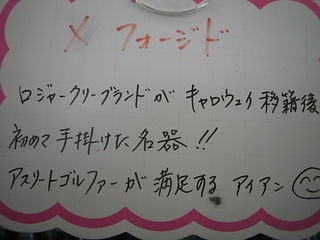 X フォージド
ロジャークリーブランドが キャロウェイ移籍後
初めて手掛けた名器!!
アスリートゴルファーが満足する アイアン